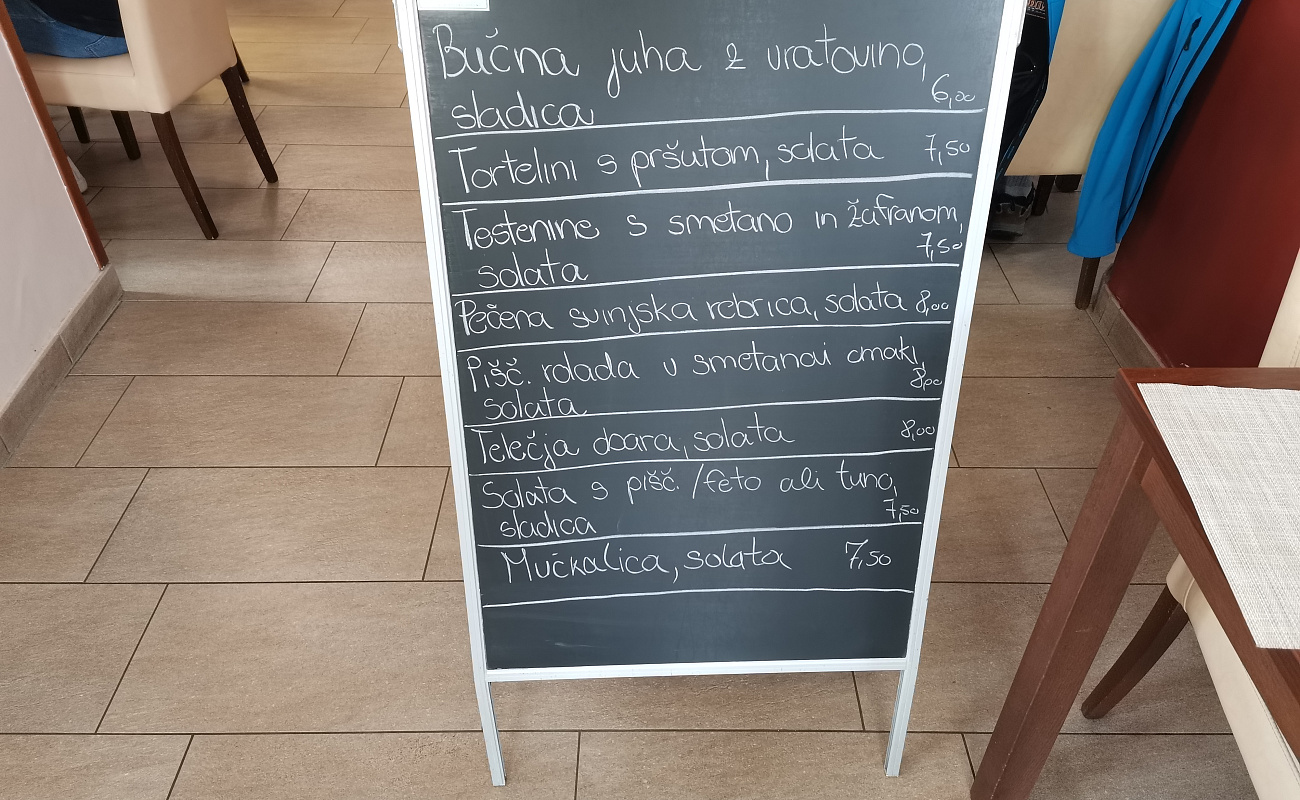 Bučna juha z vratovino,
sladica 6,00
Tortelini s pršutom, solata 7,50
Testenine s smetano in žafranom,
solata 7,50
Pečena svinjska rebrica, solata 8,00
Pišč. rolada v smetanovi omaki,
solata 8,00
Telečja obara, solata 8,00
Solata s pišč. /feto ali tuno,
sladica 7,50
Mučkalica, solata 7,50